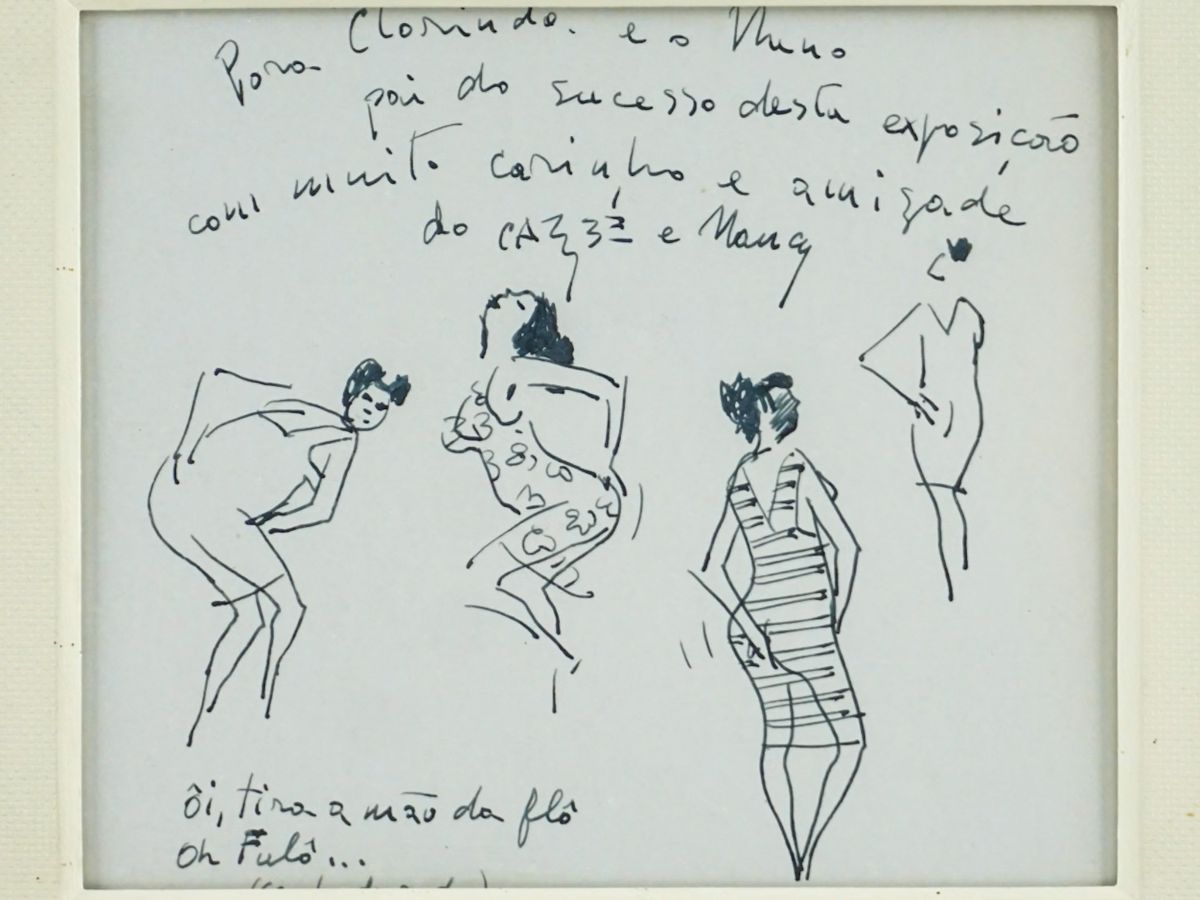 Para Clorindo. e o
pai do sucesso desta exposição
com muito carinho e amizade
do CAZZÉ e Nancy
ôi, tira a mão da flô
oh Fulô...